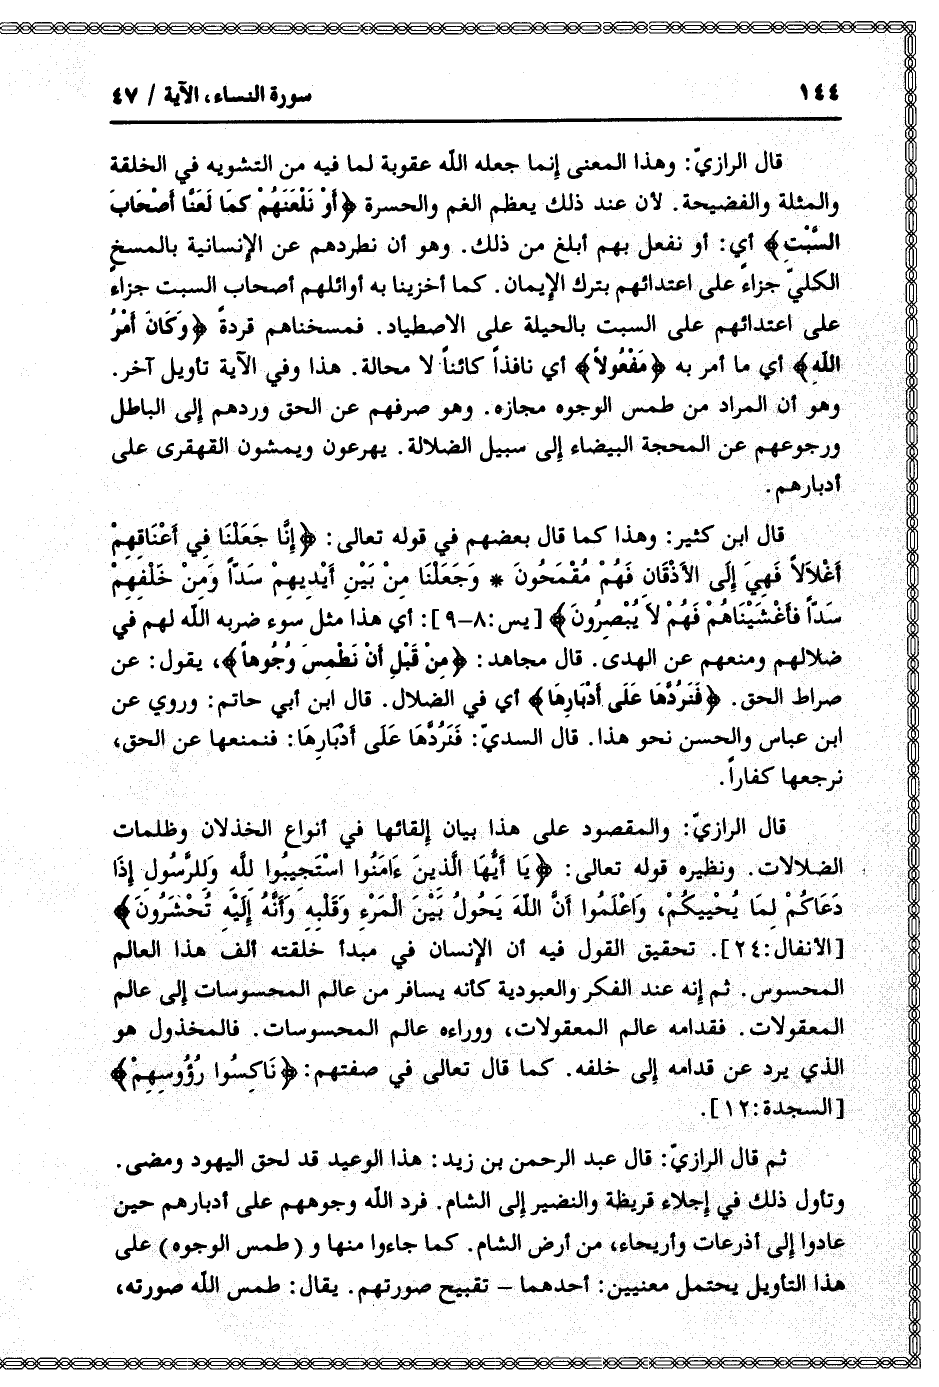 ١٤٤
سورة النساء، الآية / ٤٧
قال الرازيّ: وهذا المعنى إنما جعله الله عقوبة لما فيه من التشويه في الخلقة
والمثلة والفضيحة. لأن عند ذلك يعظم الغم والحسرة ﴿أَوْ نَلْعَنَهُمْ كَمَا لَعَنَّا أَصْحَابَ
السَّبْتِ﴾ أي: أو نفعل بهم أبلغ من ذلك. وهو أن نطردهم عن الإنسانية بالمسخ
الكليّ جزاءً على اعتدائهم بترك الإيمان. كما أخزينا به أوائلهم أصحاب السبت جزاءً
على اعتدائهم على السبت بالحيلة على الاصطياد. فمسخناهم قردةً ﴿وَكَانَ أَمْرُ
اللَّهِ﴾ أي ما أمر به ﴿مَفْعُولاً﴾ أي نافذاً كائناً لا محالة. هذا وفي الآية تأويل آخر.
وهو أن المراد من طمس الوجوه مجازه. وهو صرفهم عن الحق وردهم إلى الباطل
ورجوعهم عن المحجة البيضاء إلى سبيل الضلالة. يهرعون ويمشون القهقرى على
أدبارهم.
قال ابن كثير: وهذا كما قال بعضهم في قوله تعالى: ﴿إِنَّا جَعَلْنَا فِي أَعْنَاقِهِمْ
أَغْلاَلاً فَهِيَ إِلَى الأَذْقَانِ فَهُمْ مُقْمَحُونَ * وَجَعَلْنَا مِنْ بَيْنِ أَيْدِيهِمْ سَدّاً وَمِنْ خَلْفِهِمْ
سَدّاً فأَغْشَيْنَاهُمْ فَهُمْ لاَ يُبْصِرُونَ﴾ [يس:٨-٩]: أي هذا مثل سوء ضربه الله لهم في
ضلالهم ومنعهم عن الهدى. قال مجاهد: ﴿مِنْ قَبْلِ أَنْ نَطْمِسَ وُجُوهاً﴾، يقول: عن
صراط الحق. ﴿فَنَرُدَّهَا عَلَى أَدْبَارِهَا﴾ أي في الضلال. قال ابن أبي حاتم: وروي عن
ابن عباس والحسن نحو هذا. قال السديّ: فَنَرُدَّهَا عَلَى أَدْبَارِهَا: فنمنعها عن الحق،
نرجعها كفاراً.
قال الرازيّ: والمقصود على هذا بيان إلقائها في أنواع الخذلان وظلمات
الضلالات. ونظيره قوله تعالى: ﴿يَا أَيُّهَا الَّذِينَ ءَامَنُوا اسْتَجِيبُوا لِلَّهِ وَلِلرَّسُولِ إِذَا
دَعَاكُمْ لِمَا يُحْيِيكُمْ، وَاعْلَمُوا أَنَّ اللَّهَ يَحُولُ بَيْنَ الْمَرْءِ وَقَلْبِهِ وَأَنَّهُ إِلَيْهِ تُحْشَرُونَ﴾
[الأنفال:٢٤]. تحقيق القول فيه أن الإنسان في مبدأ خلقته ألف هذا العالم
المحسوس. ثم إنه عند الفكر والعبودية كأنه يسافر من عالم المحسوسات إلى عالم
المعقولات. فقدامه عالم المعقولات، ووراءه عالم المحسوسات. فالمخذول هو
الذي يرد عن قدامه إلى خلفه. كما قال تعالى في صفتهم: ﴿نَاكِسُوا رُؤُوسِهِمْ﴾
[السجدة:١٢].
ثم قال الرازيّ: قال عبد الرحمن بن زيد: هذا الوعيد قد لحق اليهود ومضى.
وتأول ذلك في إجلاء قريظة والنضير إلى الشام. فرد الله وجوههم على أدبارهم حين
عادوا إلى أذرعات وأريحاء، من أرض الشام. كما جاءوا منها و (طمس الوجوه) على
هذا التأويل يحتمل معنيين: أحدهما – تقبيح صورتهم. يقال: طمس الله صورته،